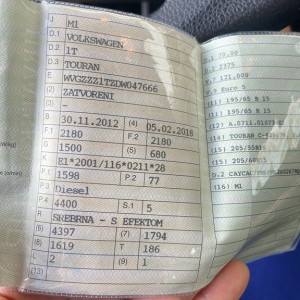 J M1
D.1 VOLKSWAGEN
D.2 1T
D.3 TOURAN
E WVGZZZ1TZDW047666
(2) ZATVORENI
(3) -
B 30.11.2012 (4) 05.02.2018
F.1 2180 F.2 2180
G 1500 (5) 680
K E1*2001/116*0211*28
P.1 1598 P.2 77
P.3 Diesel
P.4 4400 S.1 5
R SREBRNA - S EFEKTOM
(6) 4397 (7) 1794
(8) 1619 T 186
L 2 (9) 1
(13)
2375
Euro 5
(11) 195/65 R 15
(11) 195/65 R 15
(14) TOURAN
(15) 205/55R1
(15) 205/60R1
(16) M1